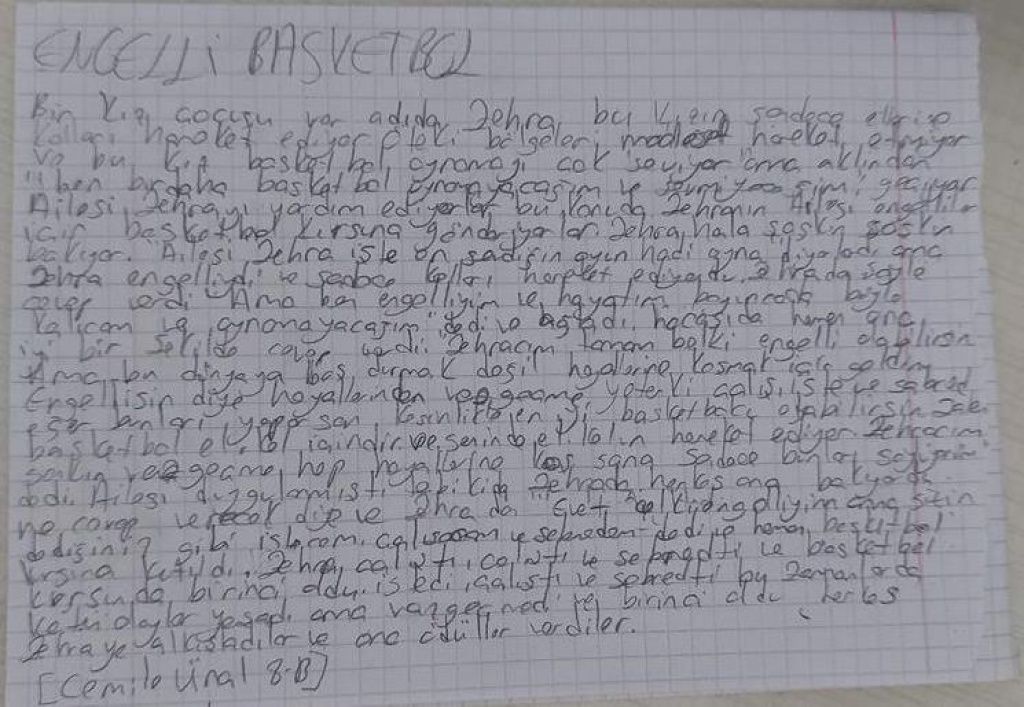 ENGELLİ BASKETBOL
Bir kız çocuğu var adıda Zehra, bu kızın sadece elleri ve
kolları hareket ediyor öteki bölgeleri hareket etmiyor
ve bu kız basketbol oynamayı çok seviyor ama aklından
"ben birdaha basketbol oynayamayacağım ve geçiyor
Ailesi Zehrayı yardım ediyorlar bu konuda Zehranın Ailesi engelliler
için basketbol kursuna gönderiyorlar Zehra hala şaşkın şaşkın
bakıyor. Ailesi Zehra işte en sevdiğin oyun hadi oyna diyorladı ama
Zehra engelliydi ve sadece kolları hareket ediyordu. Zehrada şöyle
cevap verdi Ama ben engelliyim ve hayatım boyunca böyle
kalıcam ve oynamayacağım" dedi ve ağladı. hocasıda hemen ona
iyi bir şekilde cevap verdi: Zehracım tamam belki engelli olabilirsin
Ama bu dünyaya boş durmak değil hayallerine koşmak için geldin
Engellisin diye hayallerinden vazgeçme yeterki çalış, iste ve sabret
eğer bunları yaparsan kesinlikle en iyi basketbolcu olabilirsin
basketbol el, kol içindir ve seninde el, kolun hareket ediyor Zehracım
sakın vazgeçme hep hayallerine koş sana sadece bunları söylüyorum
dedi. Ailesi duygulanmıştı Zehrada herkes ona bakıyordu
ne cevap verecek diye ve Zehra da Evet belki engelliyim ama sizin
dediğiniz gibi isticem, çalışacam ve sabredem dedi ve hemen basketbol
kursuna katıldı. Zehra çalıştı, çalıştı ve sabretti ve basketbol
kursunda birinci oldu. istedi, çalıştı ve sabretti bu zamanlarda
kötü olaylar yaşadı ama vazgeçmedi ve birinci oldu herkes
Zehraya alkışladılar ve ona ödüller verdiler.
[Cemile Ünal 8-B]